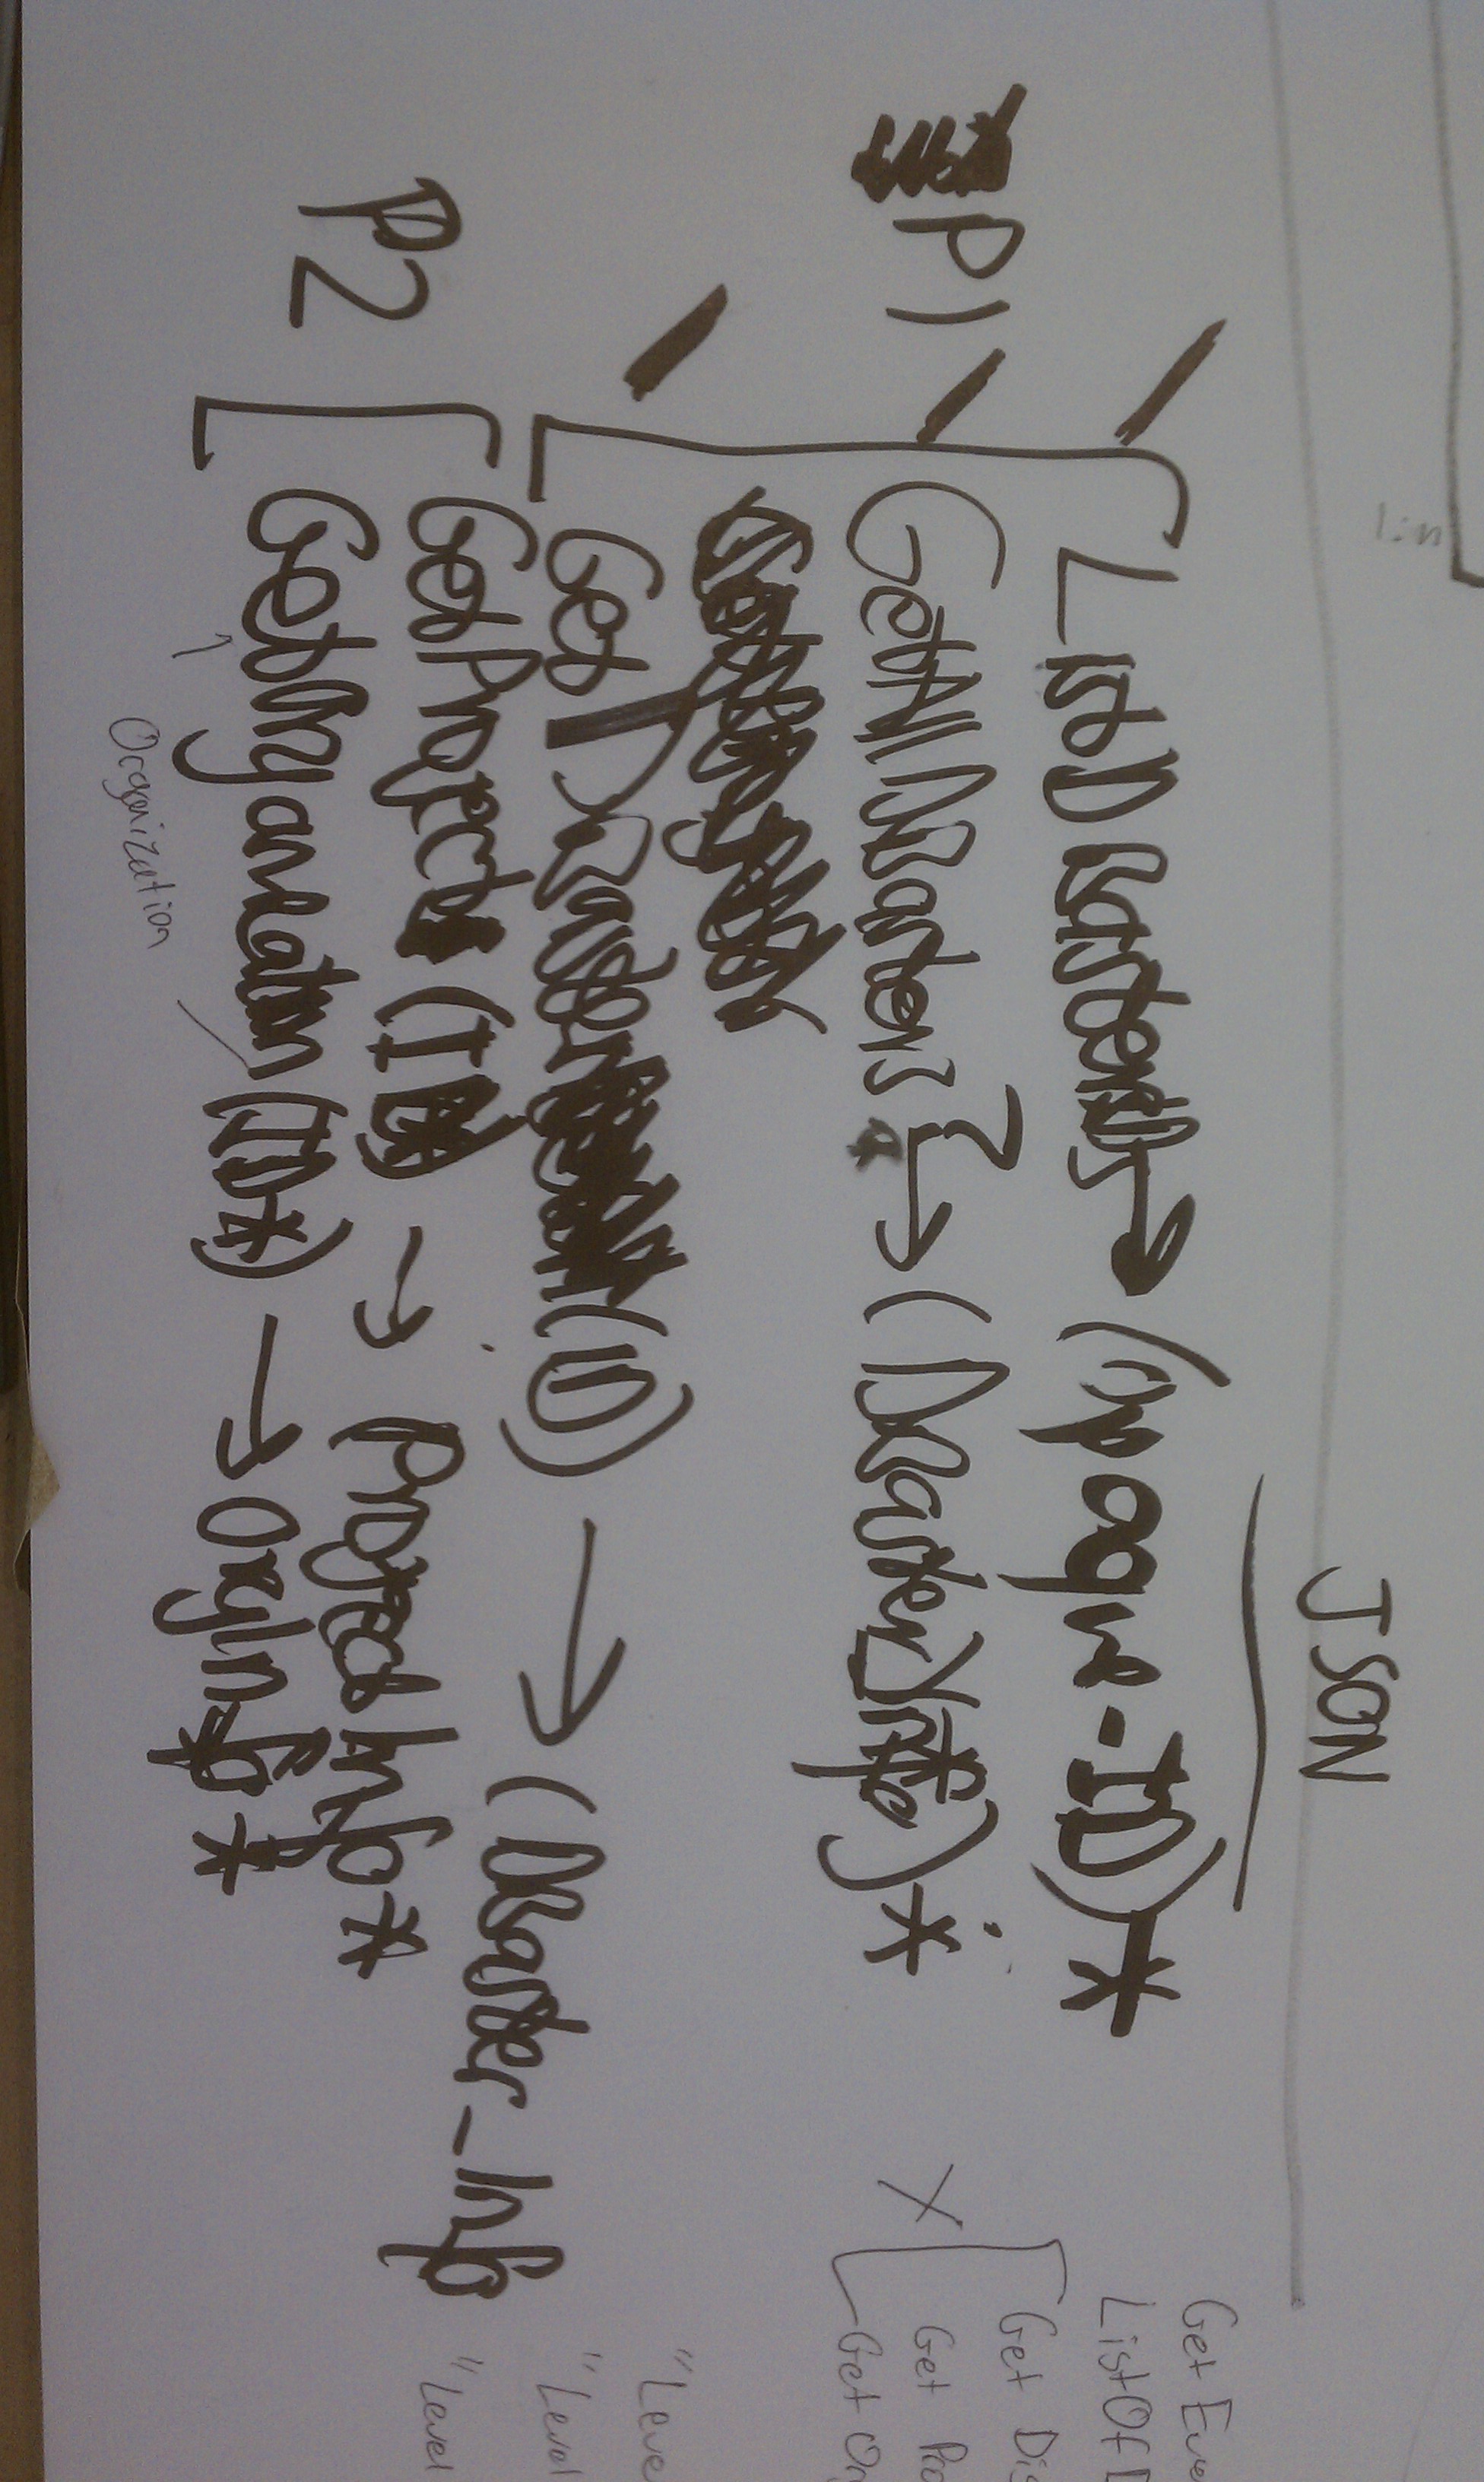 JSON
List Disasters → (opaque-ID)*
P1
GetAllDisasters → (Disaster_Info)*
Get Disaster (ID) → (Disaster_Info
P2
GetProject (ID → ProjectInfo*
Get (ID*) → OrgInfo*
Organization
Get Eve
ListOf D
X
Get Dis
Get Pro
Get Or
"Leve
"Level
"Level